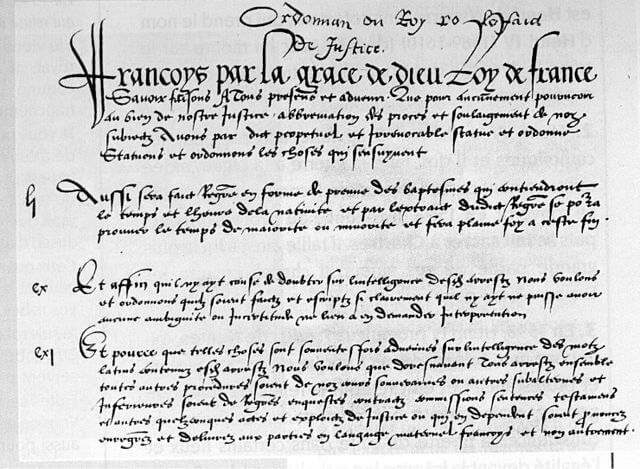 Ordonnan du Roy
de Justice.
Francoys par la grace de dieu Roy de france
Savoir faisons A Tous presens et advenir. Que pour aucunement pourveoir
au bien de nostre Justice abbreviation des proces et soulaigement de noz
subiectz Avons par dict perpetuel et Irrevocable statue et ordonne
Statuons et ordonnons les choses qui sensuyvent
Aussi sera faict Regre en forme de preuve des baptesmes qui contiendront
le temps et lheure de la nativite et par lextraict dudict Regre se porra
prouver le temps de maiorite ou minorite et sera plaine foy a ceste fin
cx Et affin quil ny ayt cause de doubter sur lintelligence desd arrestz Nous voulons
et ordonnons quilz soient faictz et escriptz si clairement quil ny ayt ne puisse avoir
aucune ambiguite ou Incertitude ne lieu a en demander Interpretation
cxj Et pource que telles choses sont souventesfois advenues sur lintelligence des motz
latins contenuz esd arrestz Nous voulons que doresnavant Tous arrestz ensemble
toutes autres procedures soient de noz cours souveraines ou autres subalternes et
Inferieures soient de Regres enquestes contractz commissions sentences testamens
et autres quelzconques actes et exploictz de Justice ou qui en dependent soient prononcez
enregrez et delivrez aux parties en langaige maternel francoys et non autrement